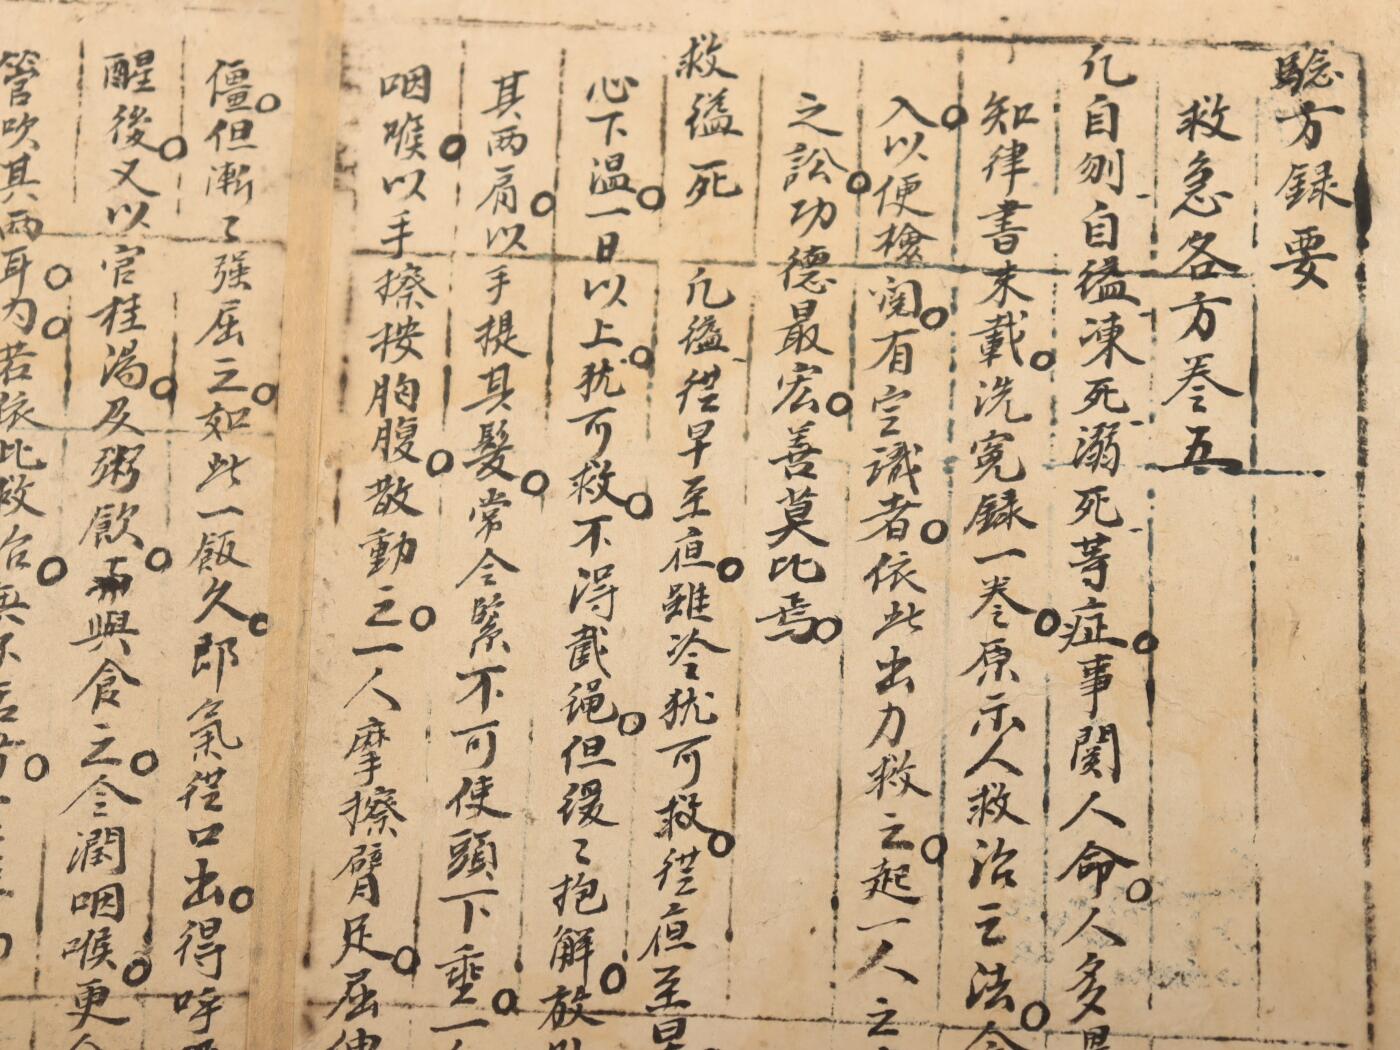 驗方録要
救急各方卷五
凢自刎自縊凍死溺死等症。事関人命。人多
知律書末載。洗寃録一卷。原示人救治之法。
入。以便檢閲。有定識者。依此出力救之。起一人之
之訟。功德最宏。善莫比焉。
救縊死 凢縊從早至夜。雖冷犹可救。從夜至
心下温。一日以上。犹可救。不得截繩。但緩〻抱解。放
其兩肩。以手提其髮。常令緊。不可使頭下垂。一
咽喉。以手擦按胸腹。散動之。一人摩擦臂足。屈
僵。但漸〻强屈之。如此一飯久。即氣從口出。得呼
醒後。又以官桂湯。及粥飲與食之。令潤咽喉。更
管吹其兩耳。内。若依此救治。無不活